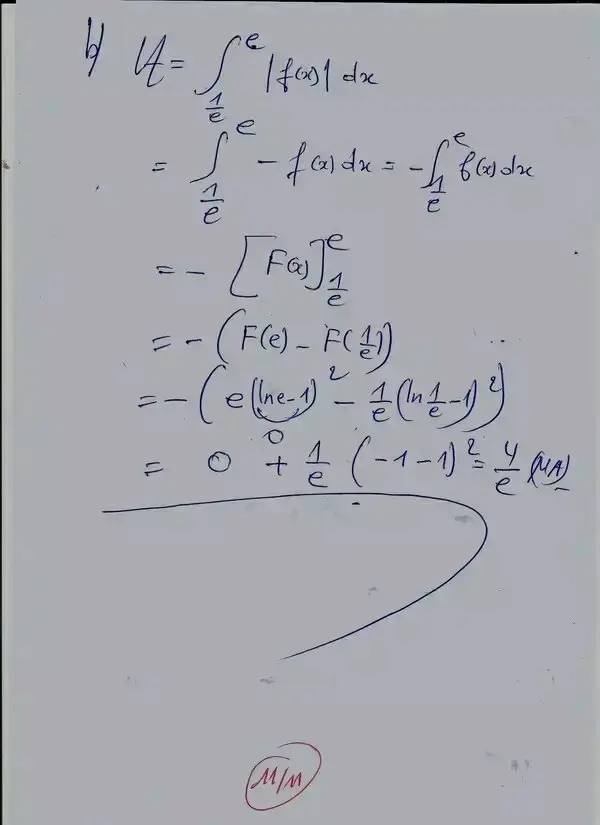 b) 𝒜 = ∫_{1/e}^{e} |f(x)| dx
= ∫_{1/e}^{e} - f(x) dx = - ∫_{1/e}^{e} f(x) dx
= - [F(x)]_{1/e}^{e}
= - (F(e) - F(1/e))
= - (e(ln e - 1)² - 1/e (ln 1/e - 1)²)
0
= 0 + 1/e (-1 - 1)² = 4/e (UA)
11/11